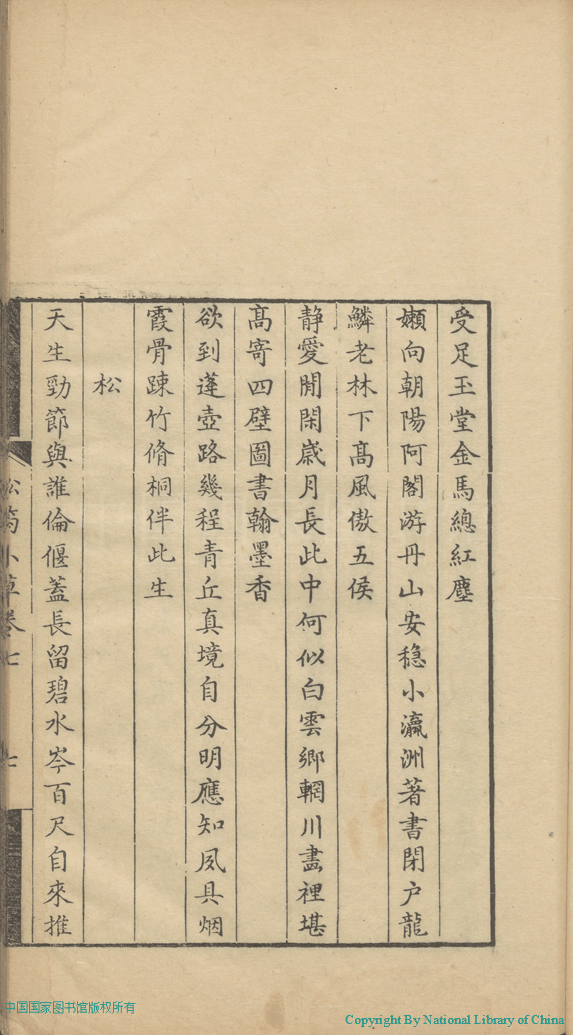 受足玉堂金馬總紅塵
嬾向朝陽阿閣游丹山安穩小瀛洲著書閉户龍
鱗老林下髙風傲五侯
静愛閒閑歳月長此中何似白雲鄉輞川畫裡堪
髙寄四壁圖書翰墨香
欲到蓬壺路幾程青丘真境自分明應知夙具烟
霞骨踈竹脩桐伴此生
松
天生勁節與誰倫偃蓋長留碧水岑百尺自來推
松筠小草卷七
七
中国国家图书馆版权所有
Copyright By National Library of China